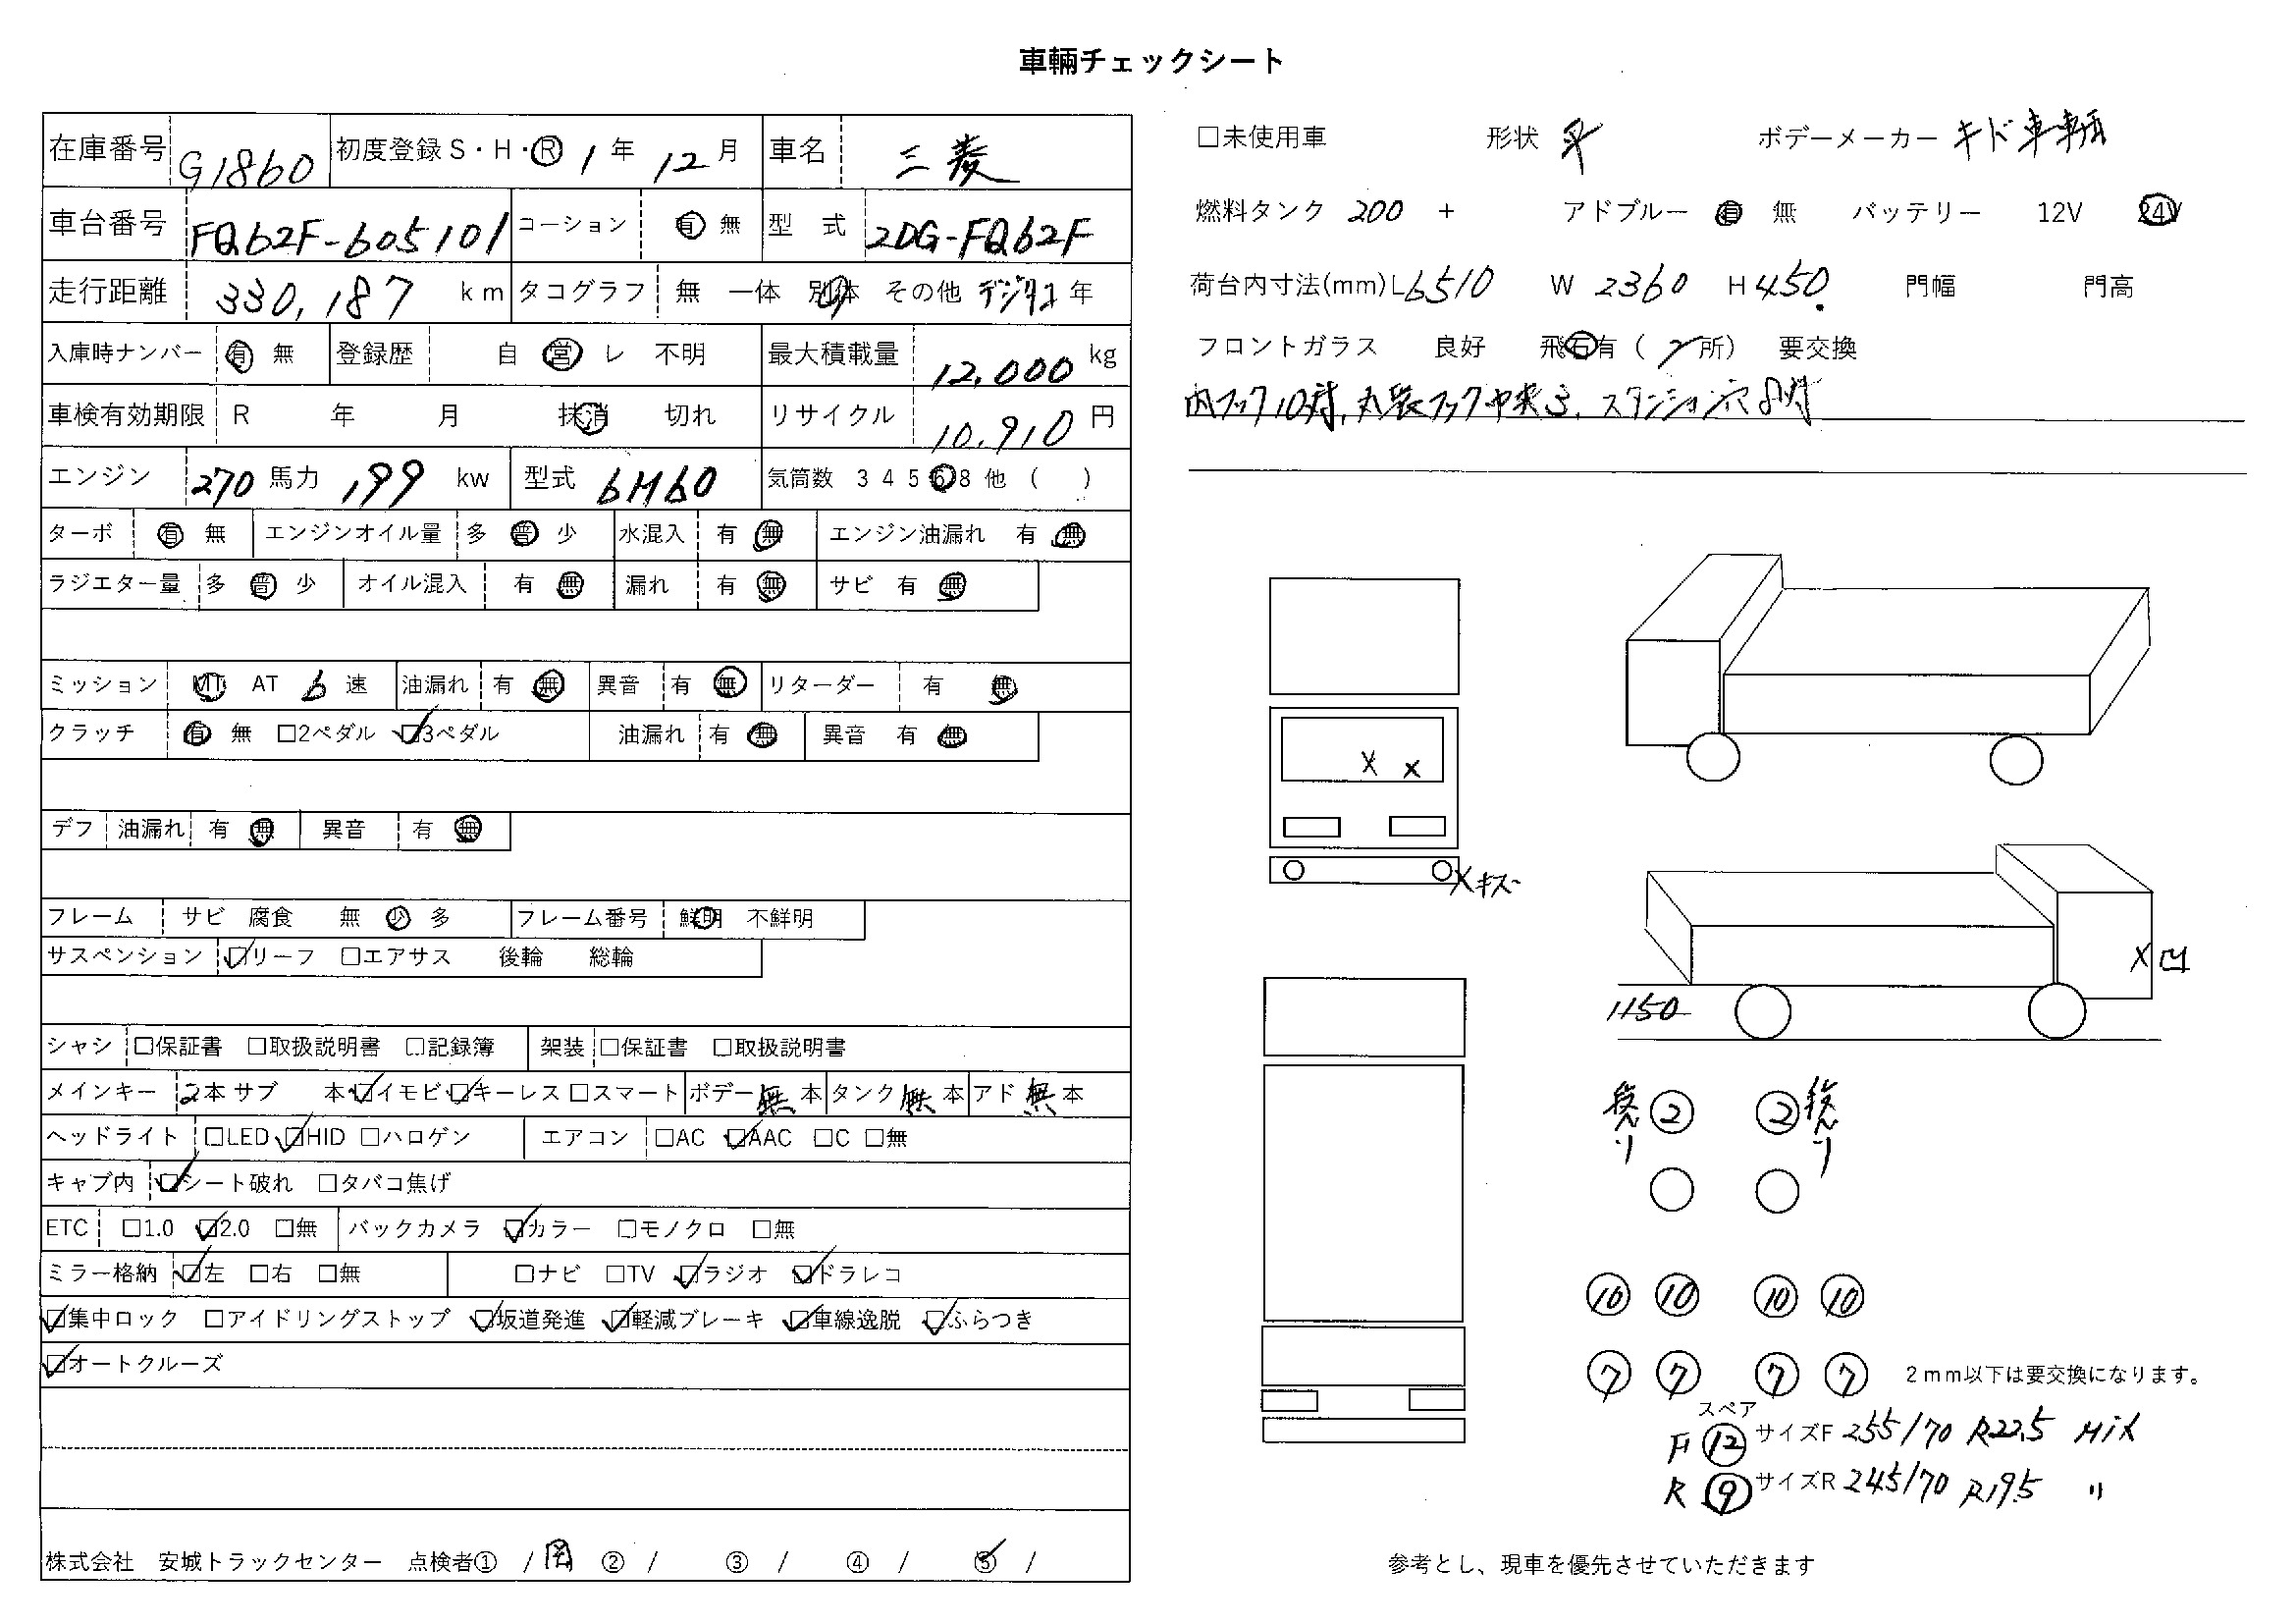 車輌チェックシート
在庫番号 G1860 初度登録 S・H・R 1 年 12 月 車名 三菱
車台番号 FQ62F-605101 コーション 有 無 型 式 2DG-FQ62F
走行距離 330,187 km タコグラフ 無 一体 別体 その他 デジタコ 年
入庫時ナンバー 有 無 登録歴 自 営 レ 不明 最大積載量 12,000 kg
車検有効期限 R 年 月 抹消 切れ リサイクル 10,910 円
エンジン 270 馬力 199 kw 型式 6M60 気筒数 3 4 5 6 8 他 ( )
ターボ 有 無 エンジンオイル量 多 普 少 水混入 有 無 エンジン油漏れ 有 無
ラジエター量 多 普 少 オイル混入 有 無 漏れ 有 無 サビ 有 無
ミッション MT AT 6 速 油漏れ 有 無 異音 有 無 リターダー 有 無
クラッチ 有 無 □2ペダル ☑3ペダル 油漏れ 有 無 異音 有 無
デフ 油漏れ 有 無 異音 有 無
フレーム サビ 腐食 無 少 多 フレーム番号 鮮明 不鮮明
サスペンション ☑リーフ □エアサス 後輪 総輪
シャシ □保証書 □取扱説明書 □記録簿 架装 □保証書 □取扱説明書
メインキー 2本 サブ 本 ☑イモビ ☑キーレス □スマート ボデー 無 本 タンク 無 本 アド 無 本
ヘッドライト □LED ☑HID □ハロゲン エアコン □AC ☑AAC □C □無
キャブ内 ☑シート破れ □タバコ焦げ
ETC □1.0 ☑2.0 □無 バックカメラ ☑カラー □モノクロ □無
ミラー格納 ☑左 □右 □無 □ナビ □TV ☑ラジオ ☑ドラレコ
☑集中ロック □アイドリングストップ ☑坂道発進 ☑軽減ブレーキ ☑車線逸脱 ☑ふらつき
☑オートクルーズ
株式会社 安城トラックセンター 点検者① / 岡 ② / ③ / ④ / ⑤ /
□未使用車 形状 平 ボデーメーカー キド車輌
燃料タンク 200 + アドブルー 有 無 バッテリー 12V 24V
荷台内寸法(mm) L6510 W 2360 H 450 門幅 門高
フロントガラス 良好 飛石有 ( 2所) 要交換
内フック10対, 丸裝フック中央3, スタンション穴8対
X X
Xキズ
X 凹
1150
② ②
⑩ ⑩ ⑩ ⑩
⑦ ⑦ ⑦ ⑦ 2mm以下は要交換になります。
スペア
F ⑫ サイズF 255/70 R22.5 Mix
R ⑨ サイズR 245/70 R19.5 〃
参考とし、現車を優先させていただきます